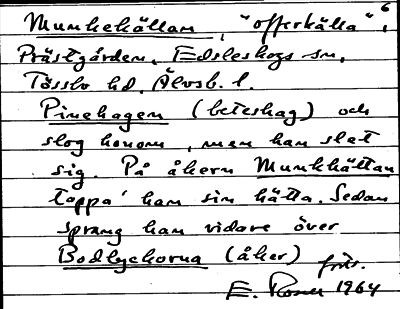 Munkehättan, "offerkälla", 6
Prästgården, Edsleskogs sn,
Tössbo hd, Älvsb. l.
Pinehagen (beteshag) och
slog honom, men han slet
sig. På åkern Munkhättan
tappa' han sin hätta. Sedan
sprang han vidare över
Bodlyckorna (åker)
E. 1964